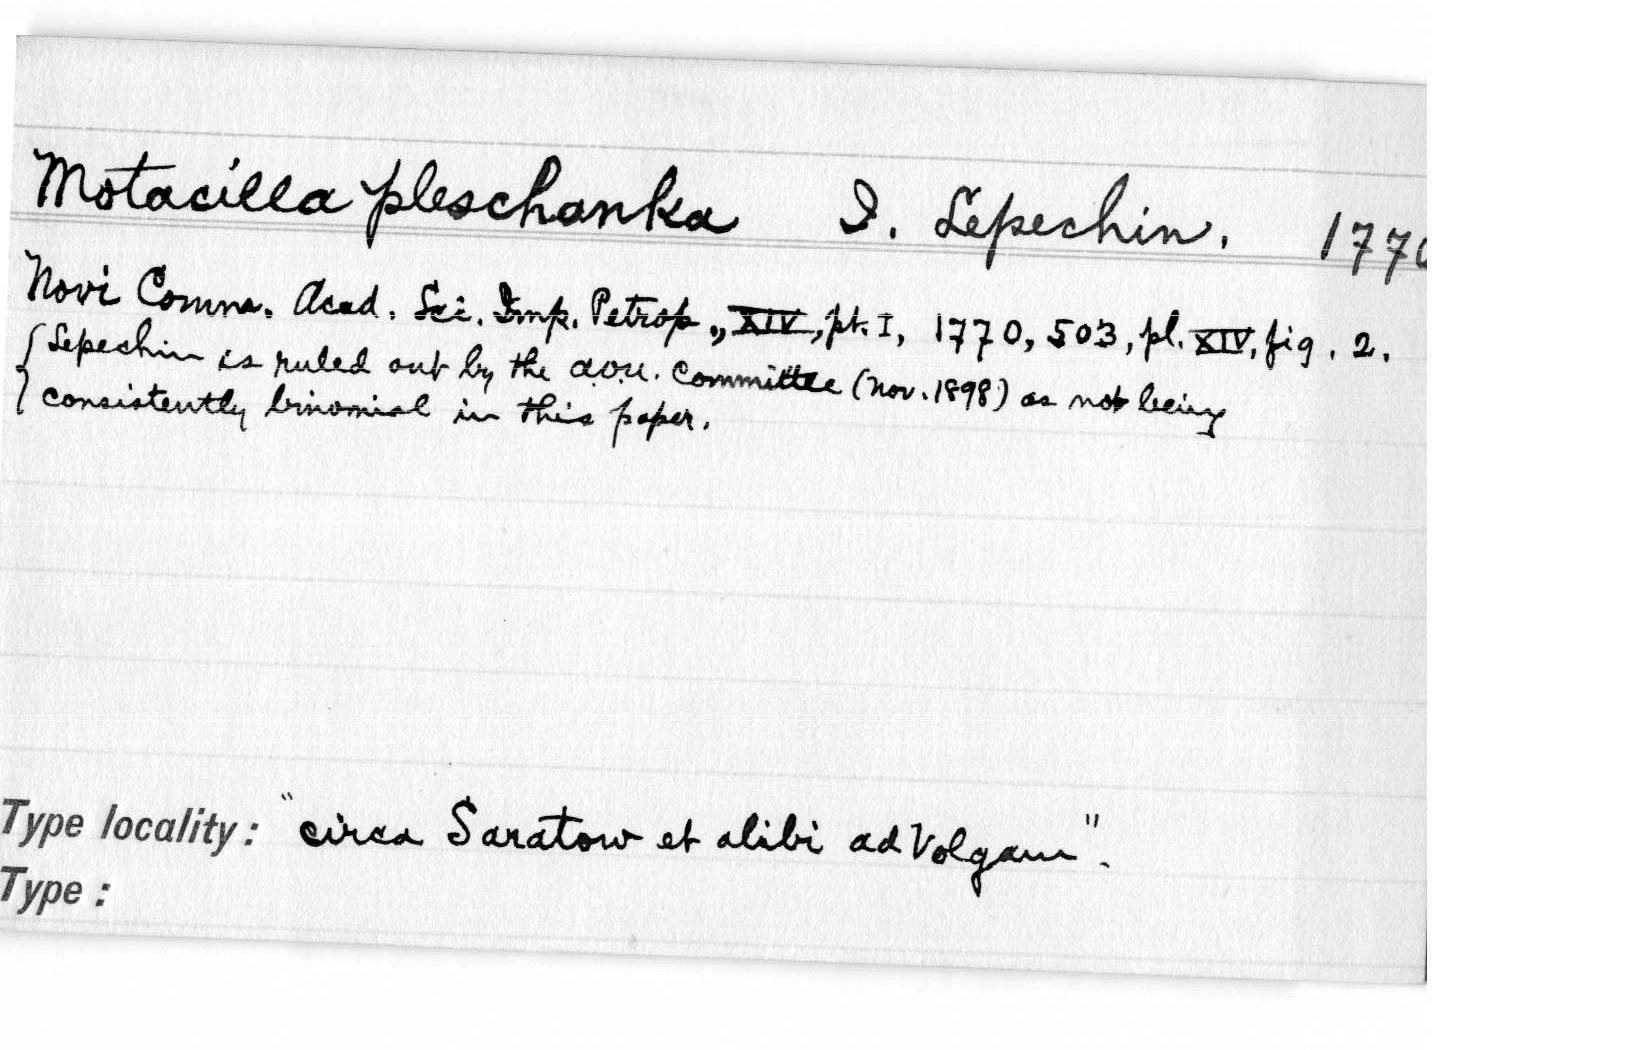 Motacilla pleschanka I. Lepechin. 1770
Novi Comm. Acad. Sci. Imp. Petrop., XIV, pt. I, 1770, 503, pl. XIV, fig. 2.
{Lepechin is ruled out by the A.O.U. Committee (Nov. 1898) as not being
consistently binomial in this paper.
Type locality: "circa Saratow et alibi ad Volgam".
Type: